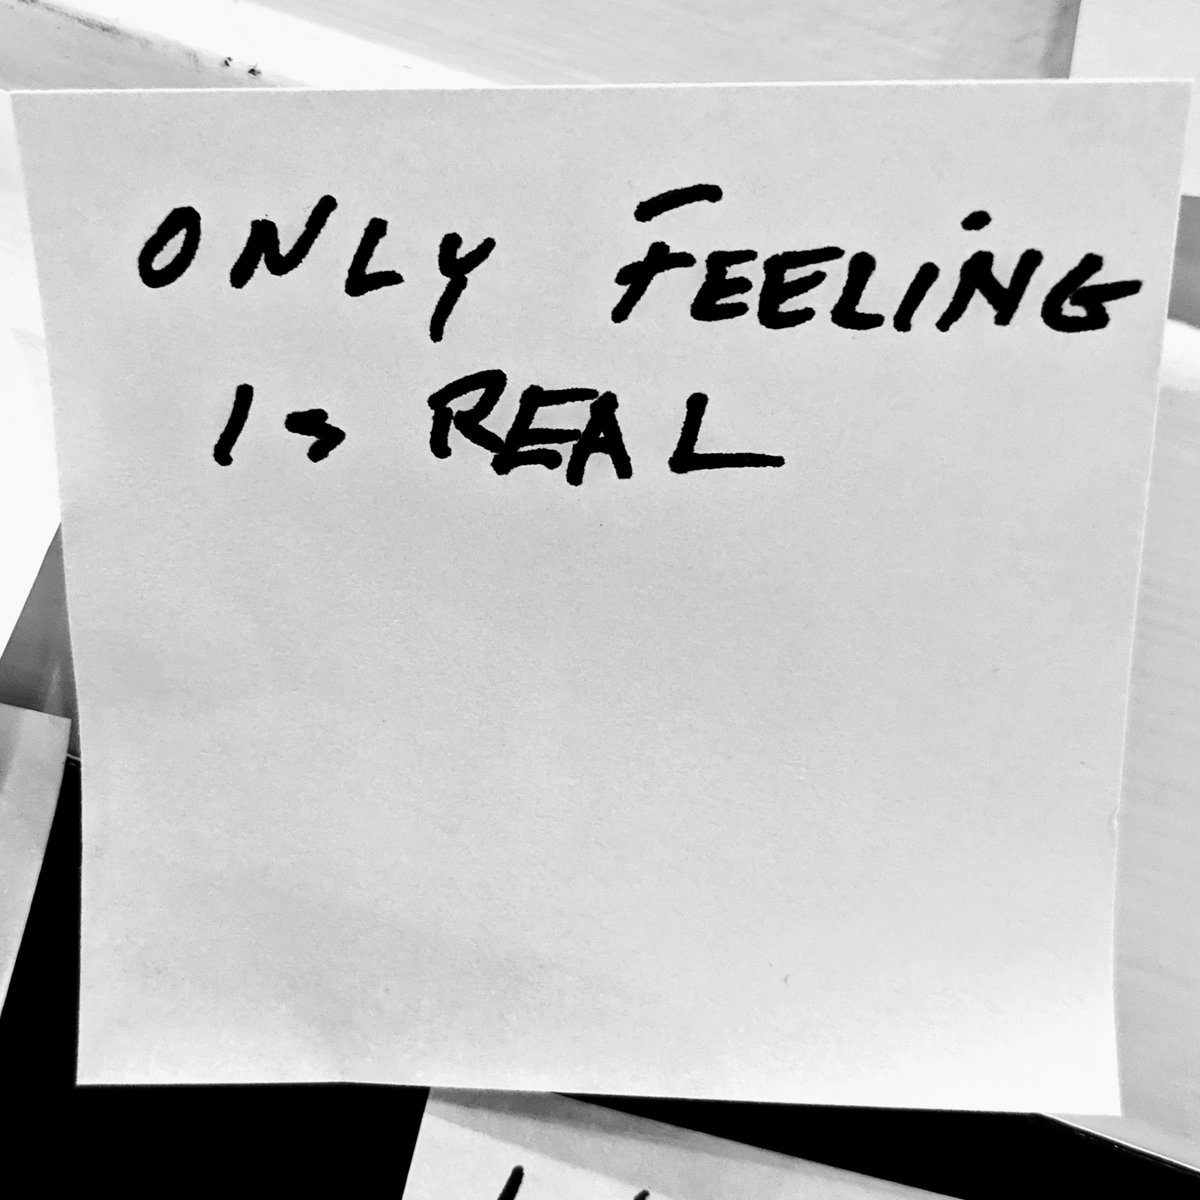 ONLY FEELING
IS REAL